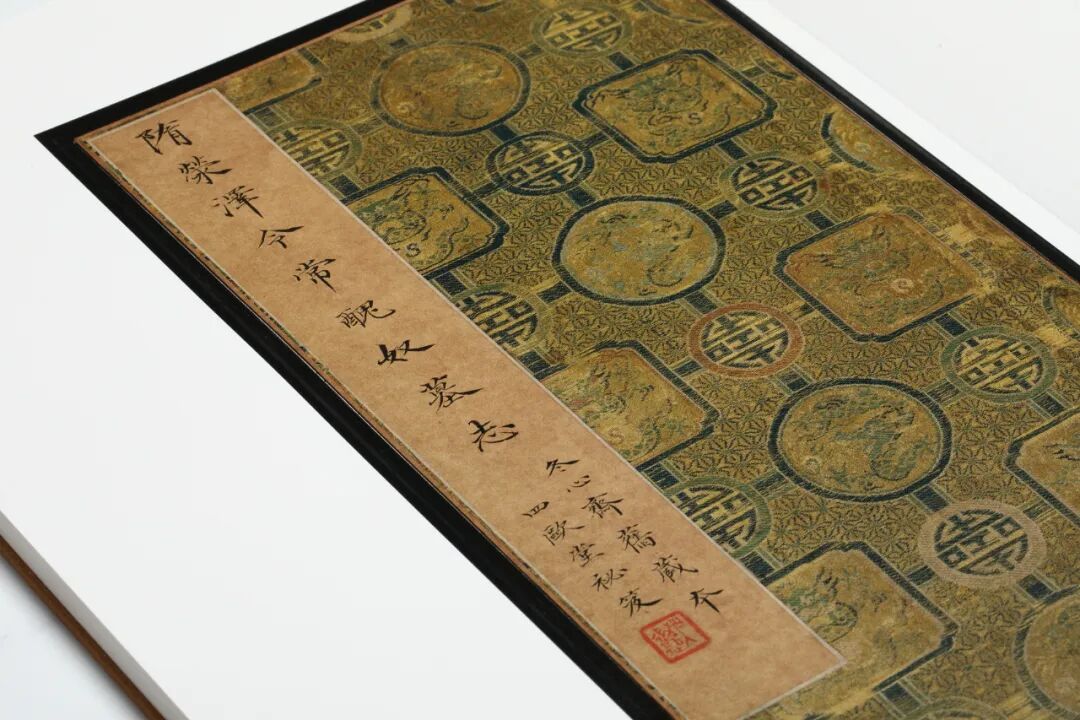 隋荥澤令常醜奴墓志
冬心齋舊藏本
四歐堂祕笈